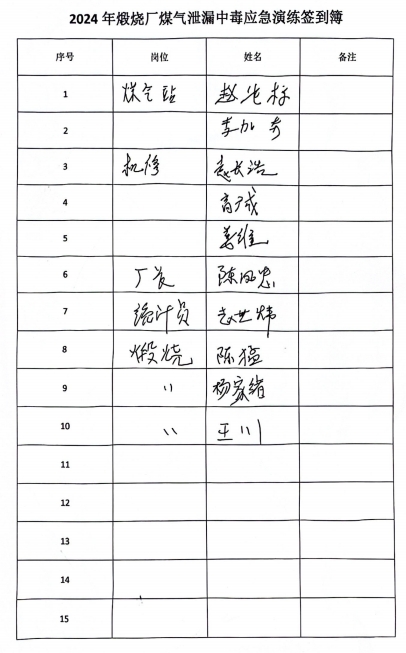 2024年煅烧厂煤气泄漏中毒应急演练签到簿
序号 岗位 姓名 备注
1 煤气站 赵先标
2 李加奇
3 机修 赵长浩
4 高成
5 葛维
6 厂长 陈忠
7 统计员 赵世炜
8 煅烧 陈猛
9 〃 杨家绪
10 〃 王川
11
12
13
14
15